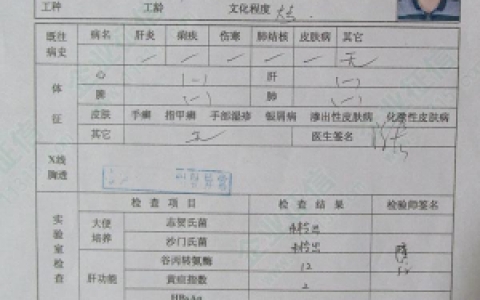 工种 工龄 文化程度 大专
既往病史 病名 肝炎 痢疾 伤寒 肺结核 皮肤病 其它
无
体征 心 (一) 肝 (一)
脾 (一) 肺 (一)
皮肤 手癣 指甲癣 手部湿疹 银屑病 渗出性皮肤病 化脓性皮肤病
其它 无 医生签名
X线胸透
实验室检查 检查项目 检查结果 检验师签名
大便培养 志贺氏菌 未检出
沙门氏菌 未检出
肝功能 谷丙转氨酶 12
黄疸指数 2
HBsAg